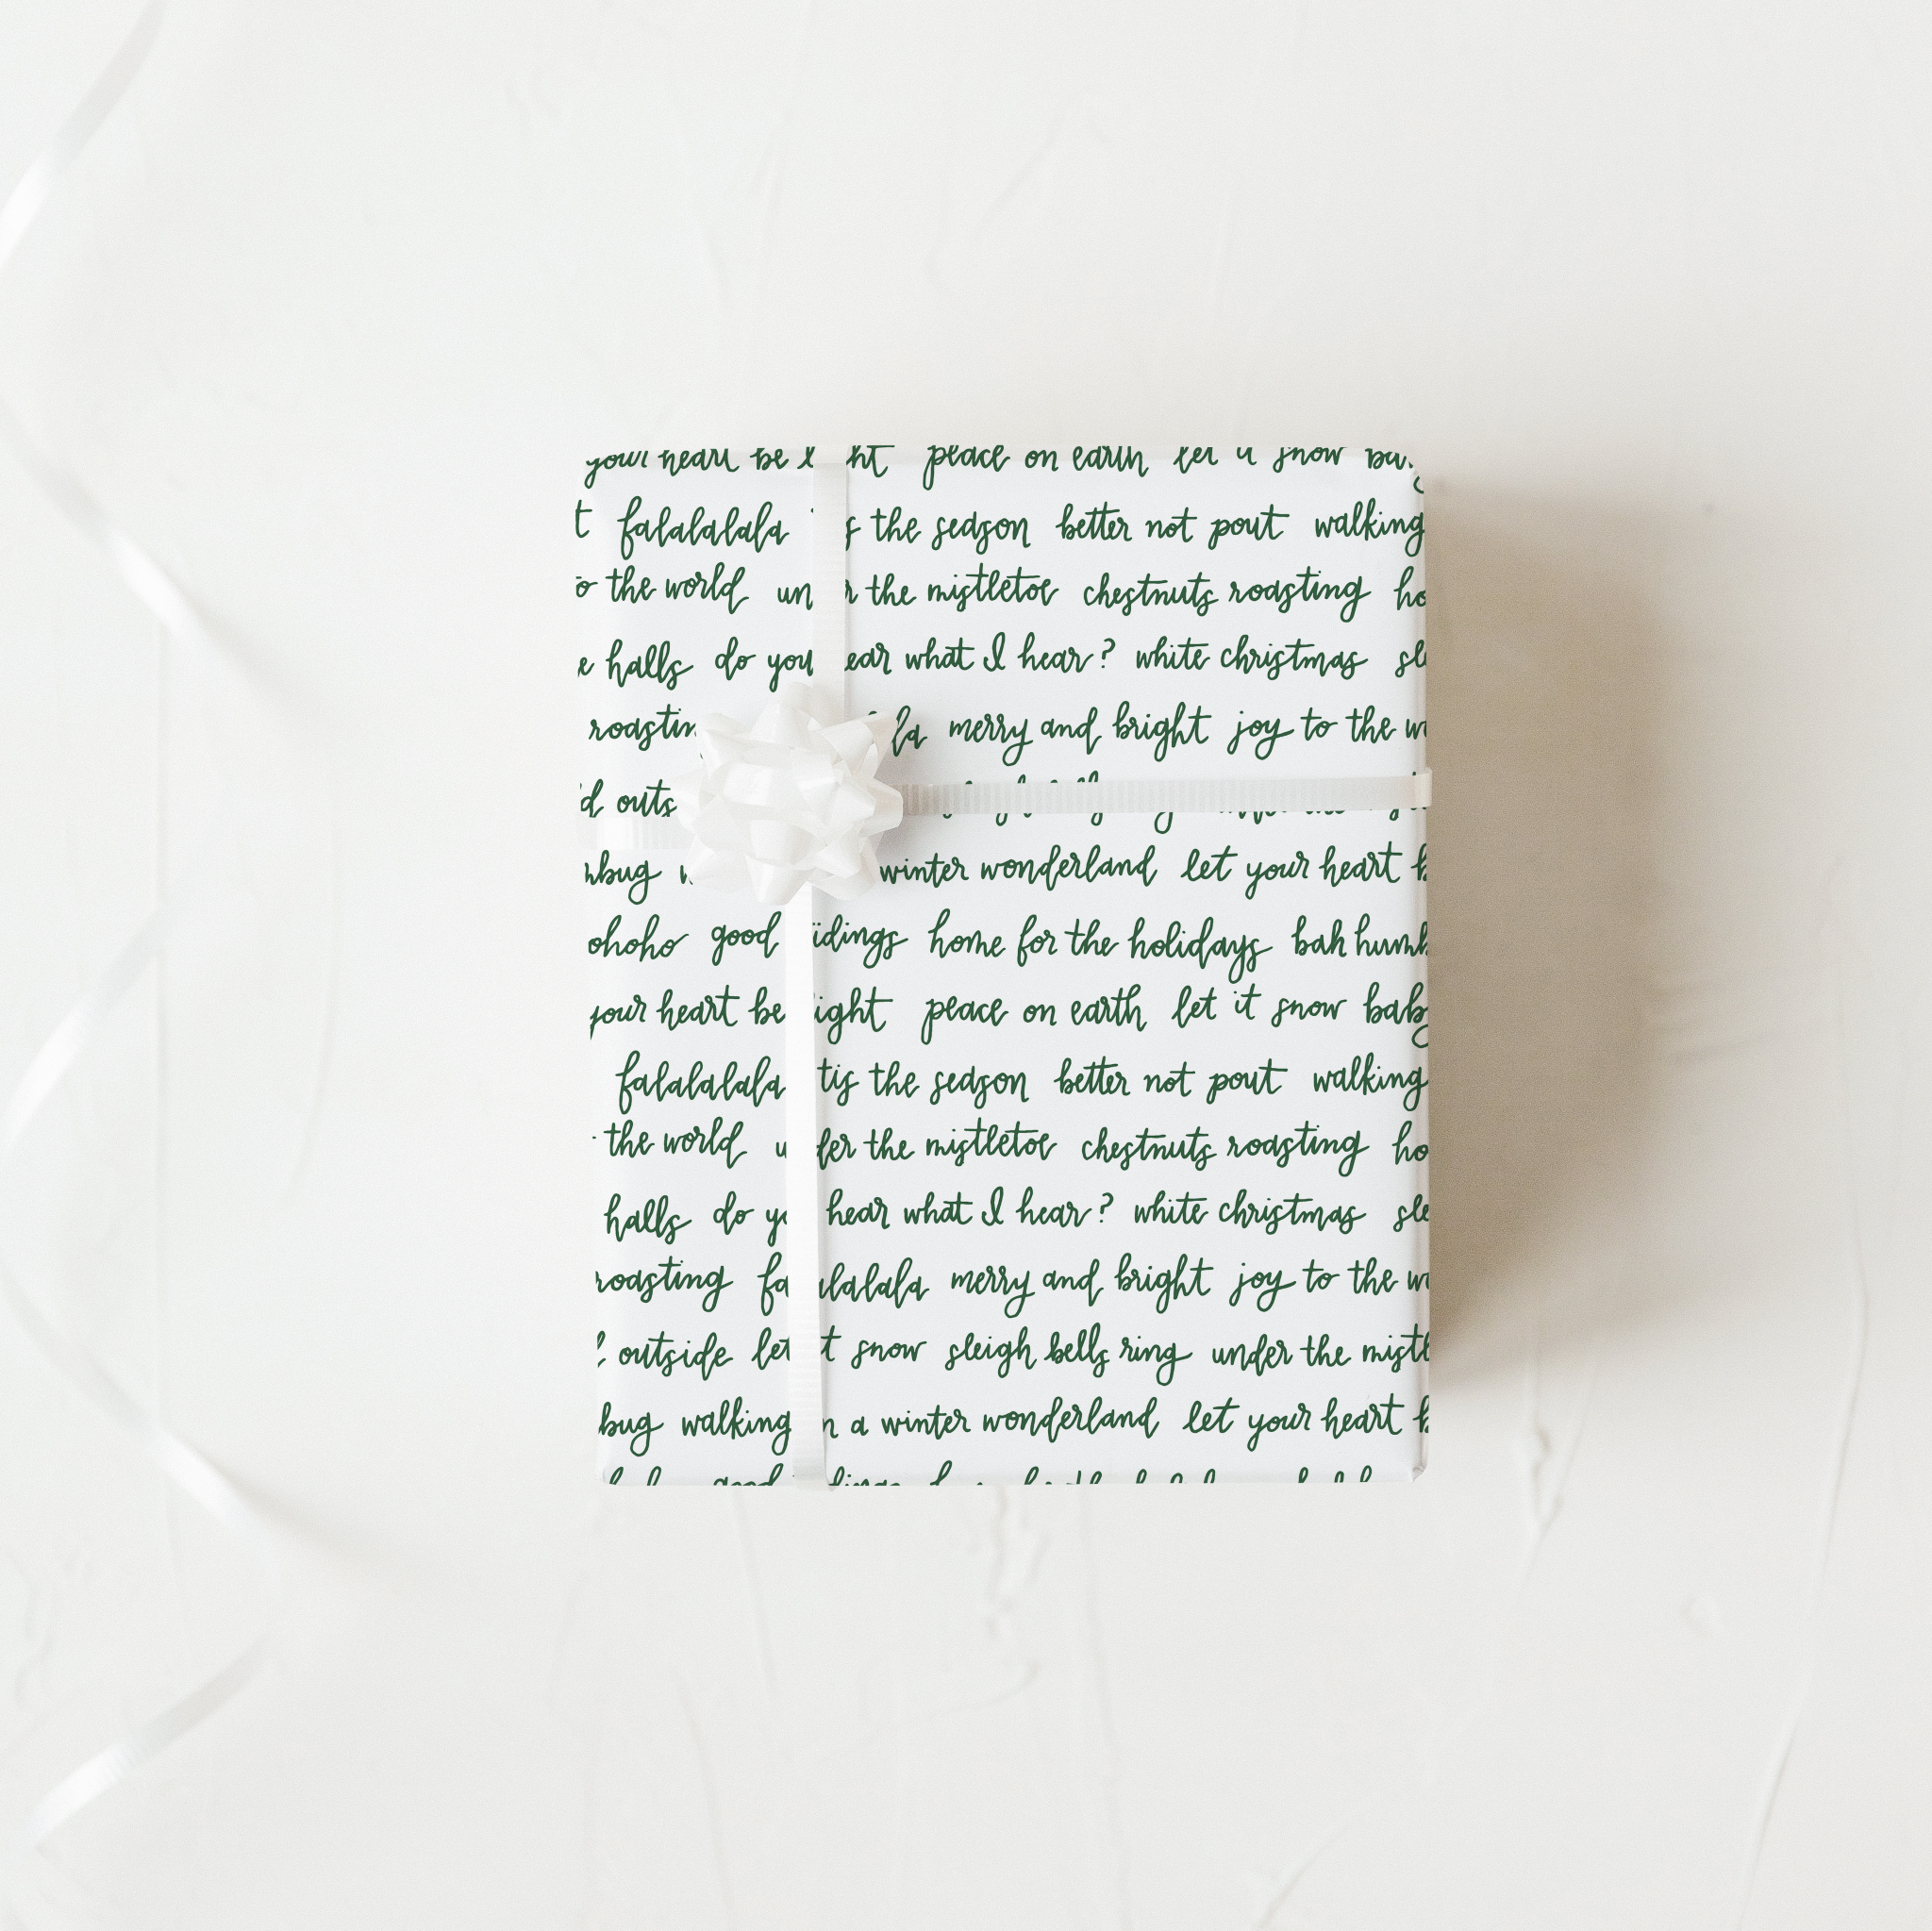 your heart be peace on earth let it snow
falalalala the season better not pout walking
the world the mistletoe chestnuts roasting
halls do you what I hear? white christmas
merry and bright joy to the
winter wonderland let your heart
good home for the holidays bah
your heart be peace on earth let it snow
falalalala tis the season better not pout walking
the world the mistletoe chestnuts roasting
halls do hear what I hear? white christmas
roasting merry and bright joy to the
outside let snow sleigh bells ring under the
walking a winter wonderland let your heart